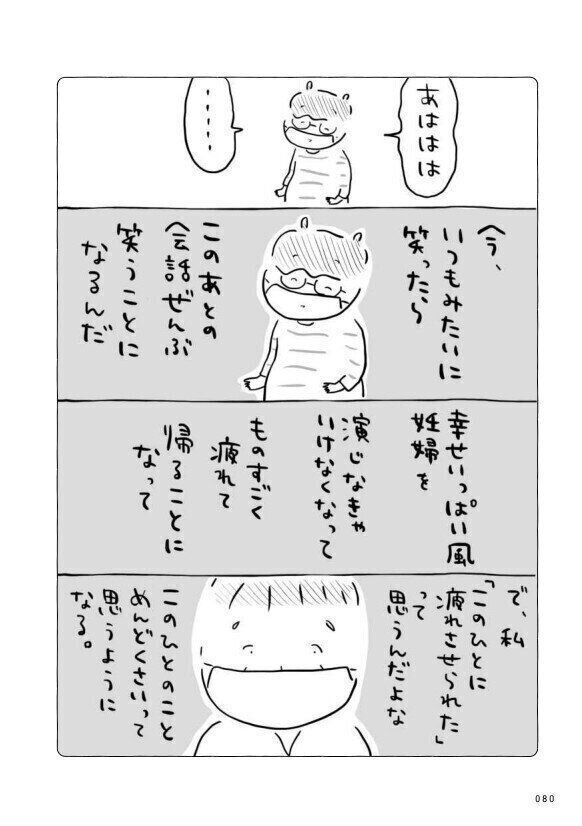 あははは
……
今、
いつもみたいに
笑ったら
このあとの
会話ぜんぶ
笑うことに
なるんだ
幸せいっぱい風
妊婦を
演じなきゃ
いけなくなって
ものすごく
疲れて
帰ることに
なって
で、私
「このひとに
疲れさせられた」
って
思うんだよな
このひとのこと
めんどくさいって
思うように
なる。
080